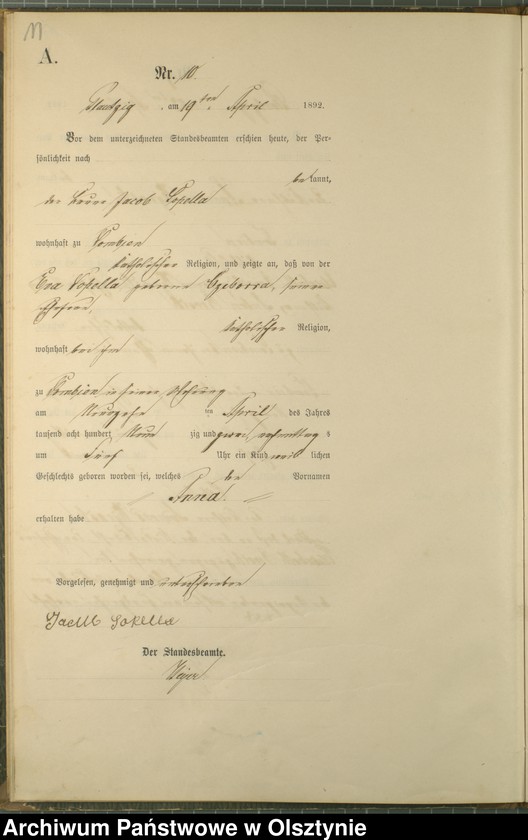 11
A.
Nr. 10.
am 19ten April 1892.
Vor dem unterzeichneten Standesbeamten erschien heute, der Per-
sönlichkeit nach
bekannt,
der Jacob Sokella
wohnhaft zu
katholischer Religion, und zeigte an, daß von der
Eva Sokella geborene Czeborra, seiner
Ehefrau,
katholischer Religion,
wohnhaft bei ihm
zu in seiner Wohnung
am ten April des Jahres
tausend acht hundert Neun zig und zwei, nachmittag s
um fünf Uhr ein Kind weib lichen
Geschlechts geboren worden sei, welches den Vornamen
Anna.
erhalten habe
Vorgelesen, genehmigt und unterschrieben
Jacob Sokella
Der Standesbeamte.